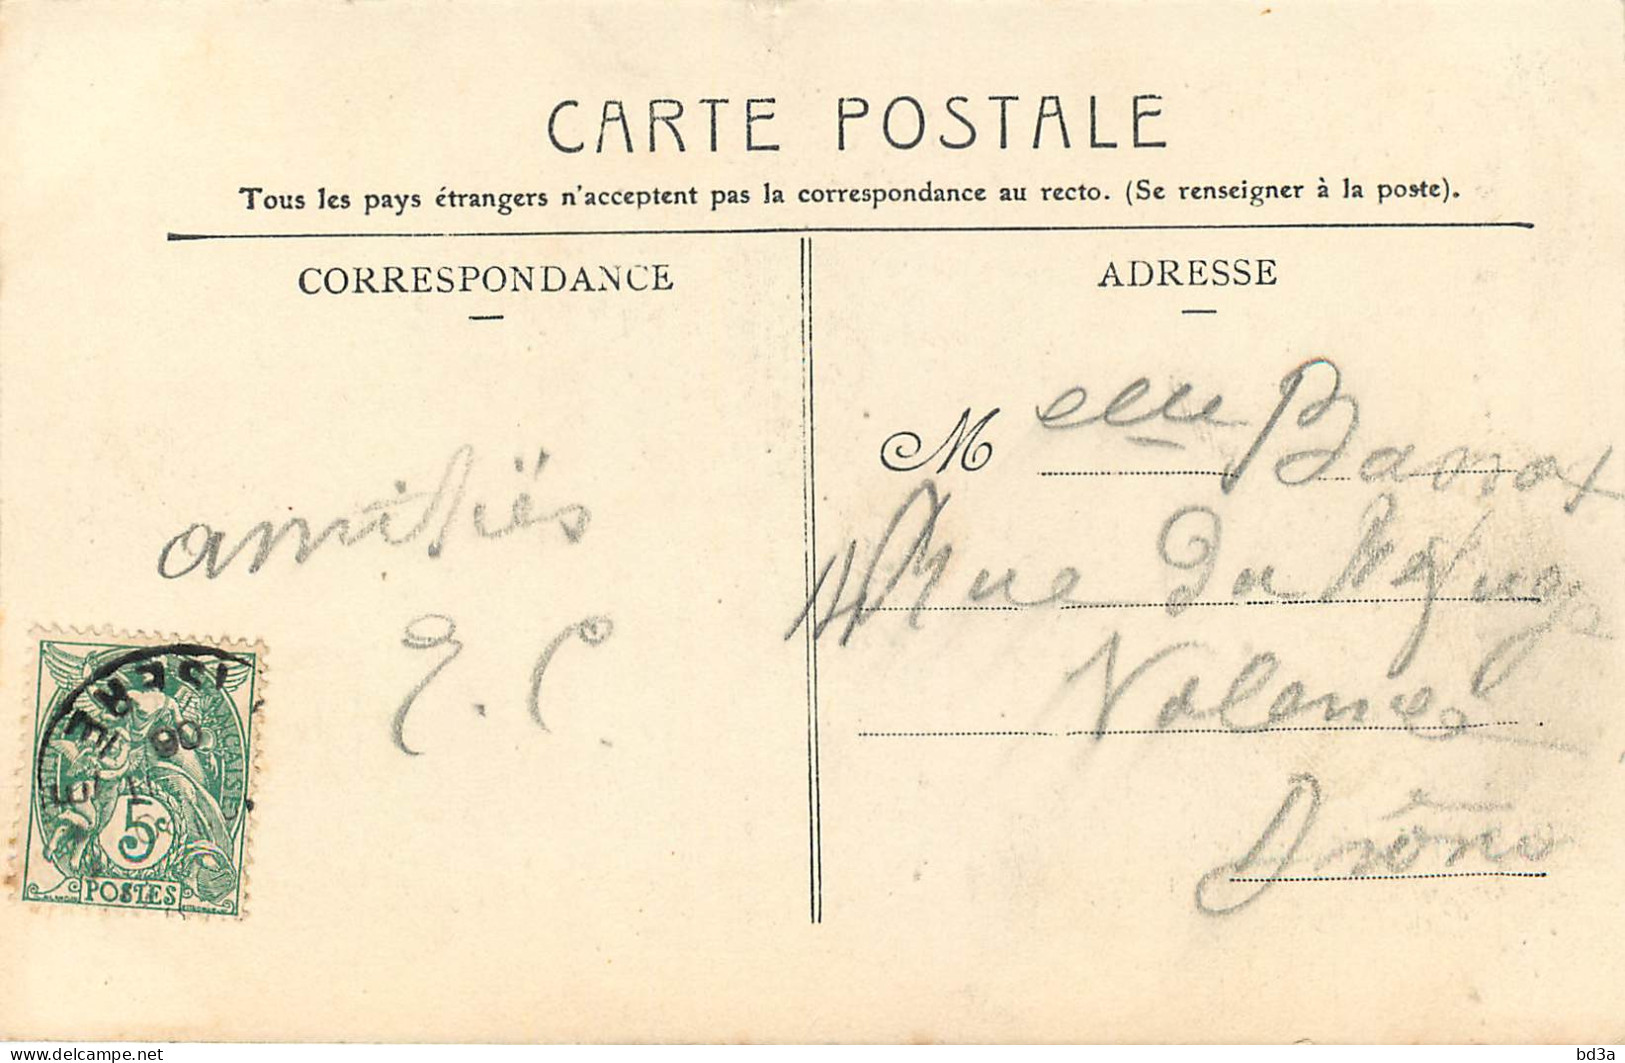 CARTE POSTALE
Tous les pays étrangers n'acceptent pas la correspondance au recto. (Se renseigner à la poste).
CORRESPONDANCE
amitiés
E. C.
ISERE
06
5c
POSTES
ADRESSE
Melle
rue du
Valence
Drôme
delcampe.net
bd3a